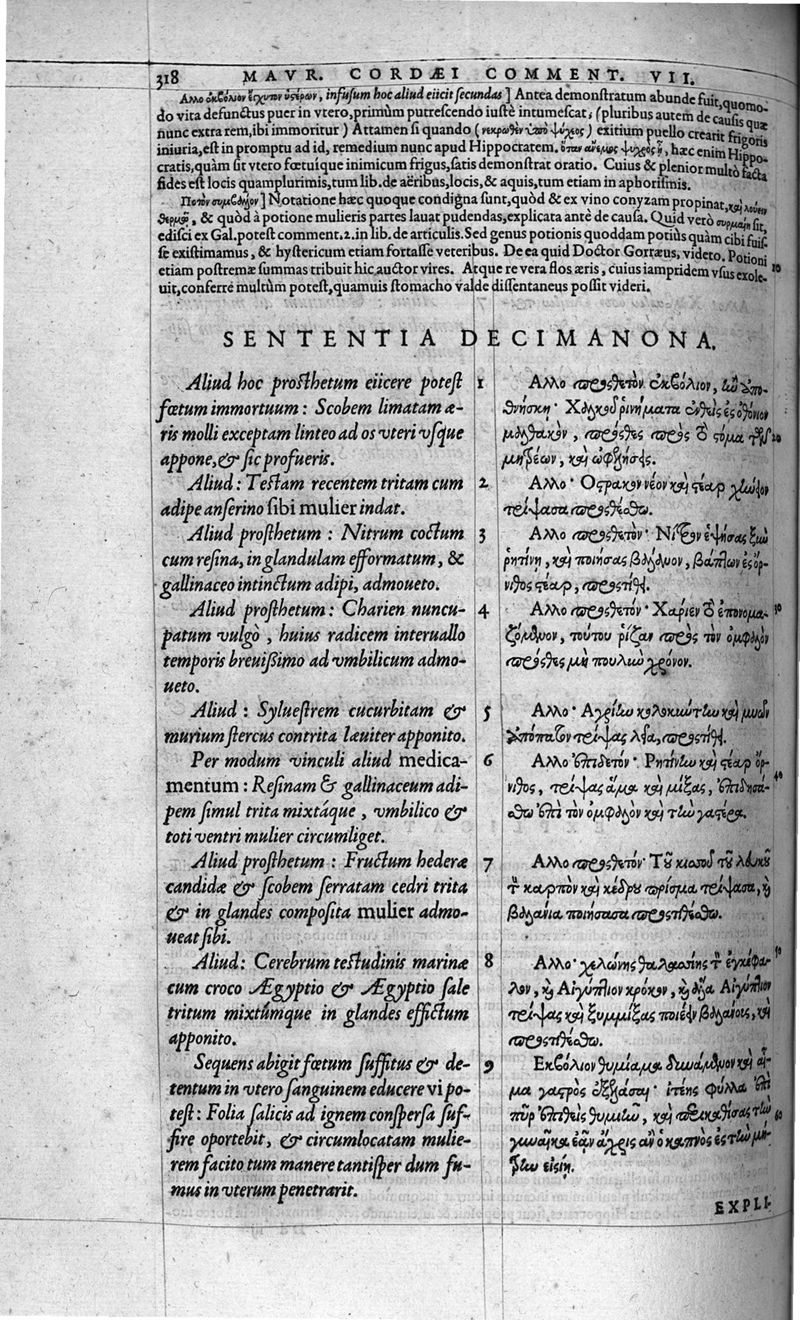 318 MAVR. CORDÆI COMMENT. VII.
Αλλο ἐκβόλιον ἔγχυτον ὑστέρων, infusum hoc aliud eiicit secundas ] Antea demonstratum abunde fuit, quomo-
do vita defunctus puer in vtero, primùm putrescendo iustè intumescat, (pluribus autem de causis quæ
nunc extra rem, ibi immoritur) Attamen si quando (νεκρωθὲν ὑπὸ ψύχεος) exitium puello crearit frigoris
iniuria, est in promptu ad id, remedium nunc apud Hippocratem. haec enim Hippo-
cratis, quàm sit vtero fœtuique inimicum frigus, satis demonstrat oratio. Cuius & plenior multò facta
fides est locis quamplurimis, tum lib. de aëribus, locis, & aquis, tum etiam in aphorismis.
] Notatione hæc quoque condigna sunt, quòd & ex vino conyzam propinat, καὶ λούειν
θερμῷ, & quòd à potione mulieris partes lauat pudendas, explicata antè de causa. Quid verò συρμαίη sit,
edisci ex Gal. potest comment. 2. in lib. de articulis. Sed genus potionis quoddam potiùs quàm cibi fuis-
se existimamus, & hystericum etiam fortasse veteribus. De ea quid Doctor Gorræus, videto. Potioni
etiam postremæ summas tribuit hic auctor vires. Atque re vera flos æris, cuius iampridem vsus exole- 10
uit, conferre multùm potest, quamuis stomacho valde dissentaneus possit videri.
SENTENTIA DECIMANONA.
Aliud hoc prosthetum eiicere potest
fœtum immortuum: Scobem limatam æ-
ris molli exceptam linteo ad os vteri vsque
appone, & sic profueris.
Aliud: Testam recentem tritam cum
adipe anserino sibi mulier indat.
Aliud prosthetum: Nitrum coctum
cum resina, in glandulam efformatum, &
gallinaceo intinctum adipi, admoueto.
Aliud prosthetum: Charien nuncu-
patum vulgò, huius radicem interuallo
temporis breuißimo ad vmbilicum admo-
ueto.
Aliud: Syluestrem cucurbitam &
murium stercus contrita læuiter apponito.
Per modum vinculi aliud medica-
mentum: Resinam & gallinaceum adi-
pem simul trita mixtáque, vmbilico &
toti ventri mulier circumliget.
Aliud prosthetum: Fructum hederæ
candidæ & scobem serratam cedri trita
& in glandes composita mulier admo-
ueat sibi.
Aliud: Cerebrum testudinis marinæ
cum croco Ægyptio & Ægyptio sale
tritum mixtúmque in glandes effictum
apponito.
Sequens abigit fœtum suffitus & de-
tentum in vtero sanguinem educere vi po-
test: Folia salicis ad ignem conspersa suf-
fire oportebit, & circumlocatam mulie-
rem facito tum manere tantisper dum fu-
mus in vterum penetrarit.
1 Αλλο προσθετὸν ἐκβόλιον, ἢν ἀπο-
θνήσκῃ· Χαλκοῦ ῥινήματα ἐνθεὶς ἐς ὀθόνιον
μαλθακὸν, πρόσθες πρὸς τὸ στόμα τῶν 20
μητρέων, καὶ ὠφελήσεις.
2 Αλλο· Οστρακον νέον καὶ στέαρ χήνειον
τρίψασα προσθέσθω.
3 Αλλο προσθετόν· Νίτρον ἑψήσας ξὺν
ῥητίνῃ, καὶ ποιήσας βάλανον, βάπτων ἐς ὄρ-
νιθος στέαρ, προστίθει.
4 Αλλο προσθετόν· Χαρίεν τὸ ἐπονομα- 30
ζόμενον, τούτου ῥίζαν πρὸς τὸν ὀμφαλὸν
πρόσθες μὴ πουλὺν χρόνον.
5 Αλλο· Αγρίην κολοκύντην καὶ μυῶν
ἀπόπατον τρίψας λεῖα, προστίθει.
6 Αλλο ἐπίδετον· Ρητίνην καὶ στέαρ ὄρ- 40
νιθος, τρίψας ἅμα καὶ μίξας, ἐπιδησά-
σθω ἐπὶ τὸν ὀμφαλὸν καὶ τὴν γαστέρα.
7 Αλλο προσθετόν· Τοῦ κισσοῦ τοῦ λευκοῦ
τὸν καρπὸν καὶ κέδρου πρίσμα τρίψασα, καὶ
βαλάνια ποιήσασα προστιθέσθω.
8 Αλλο· χελώνης θαλασσίης τὸν ἐγκέφα- 50
λον, καὶ Αἰγύπτιον κρόκον, καὶ ἅλα Αἰγύπτιον
τρίψας καὶ ξυμμίξας ποιέειν βαλάνους, καὶ
προστιθέσθω.
9 Εκβόλιον θυμίαμα δυνάμενον καὶ αἷ-
μα γαστρὸς ἐξελάσαι· ἰτέης φύλλα ἐπὶ
πῦρ ἐπιθεὶς θυμιῆν, καὶ περικαθίσας τὴν 60
γυναῖκα ἐᾷν ἄχρις ἂν ὁ καπνὸς ἐς τὴν μή-
τρην εἰσίῃ.
EXPLI-